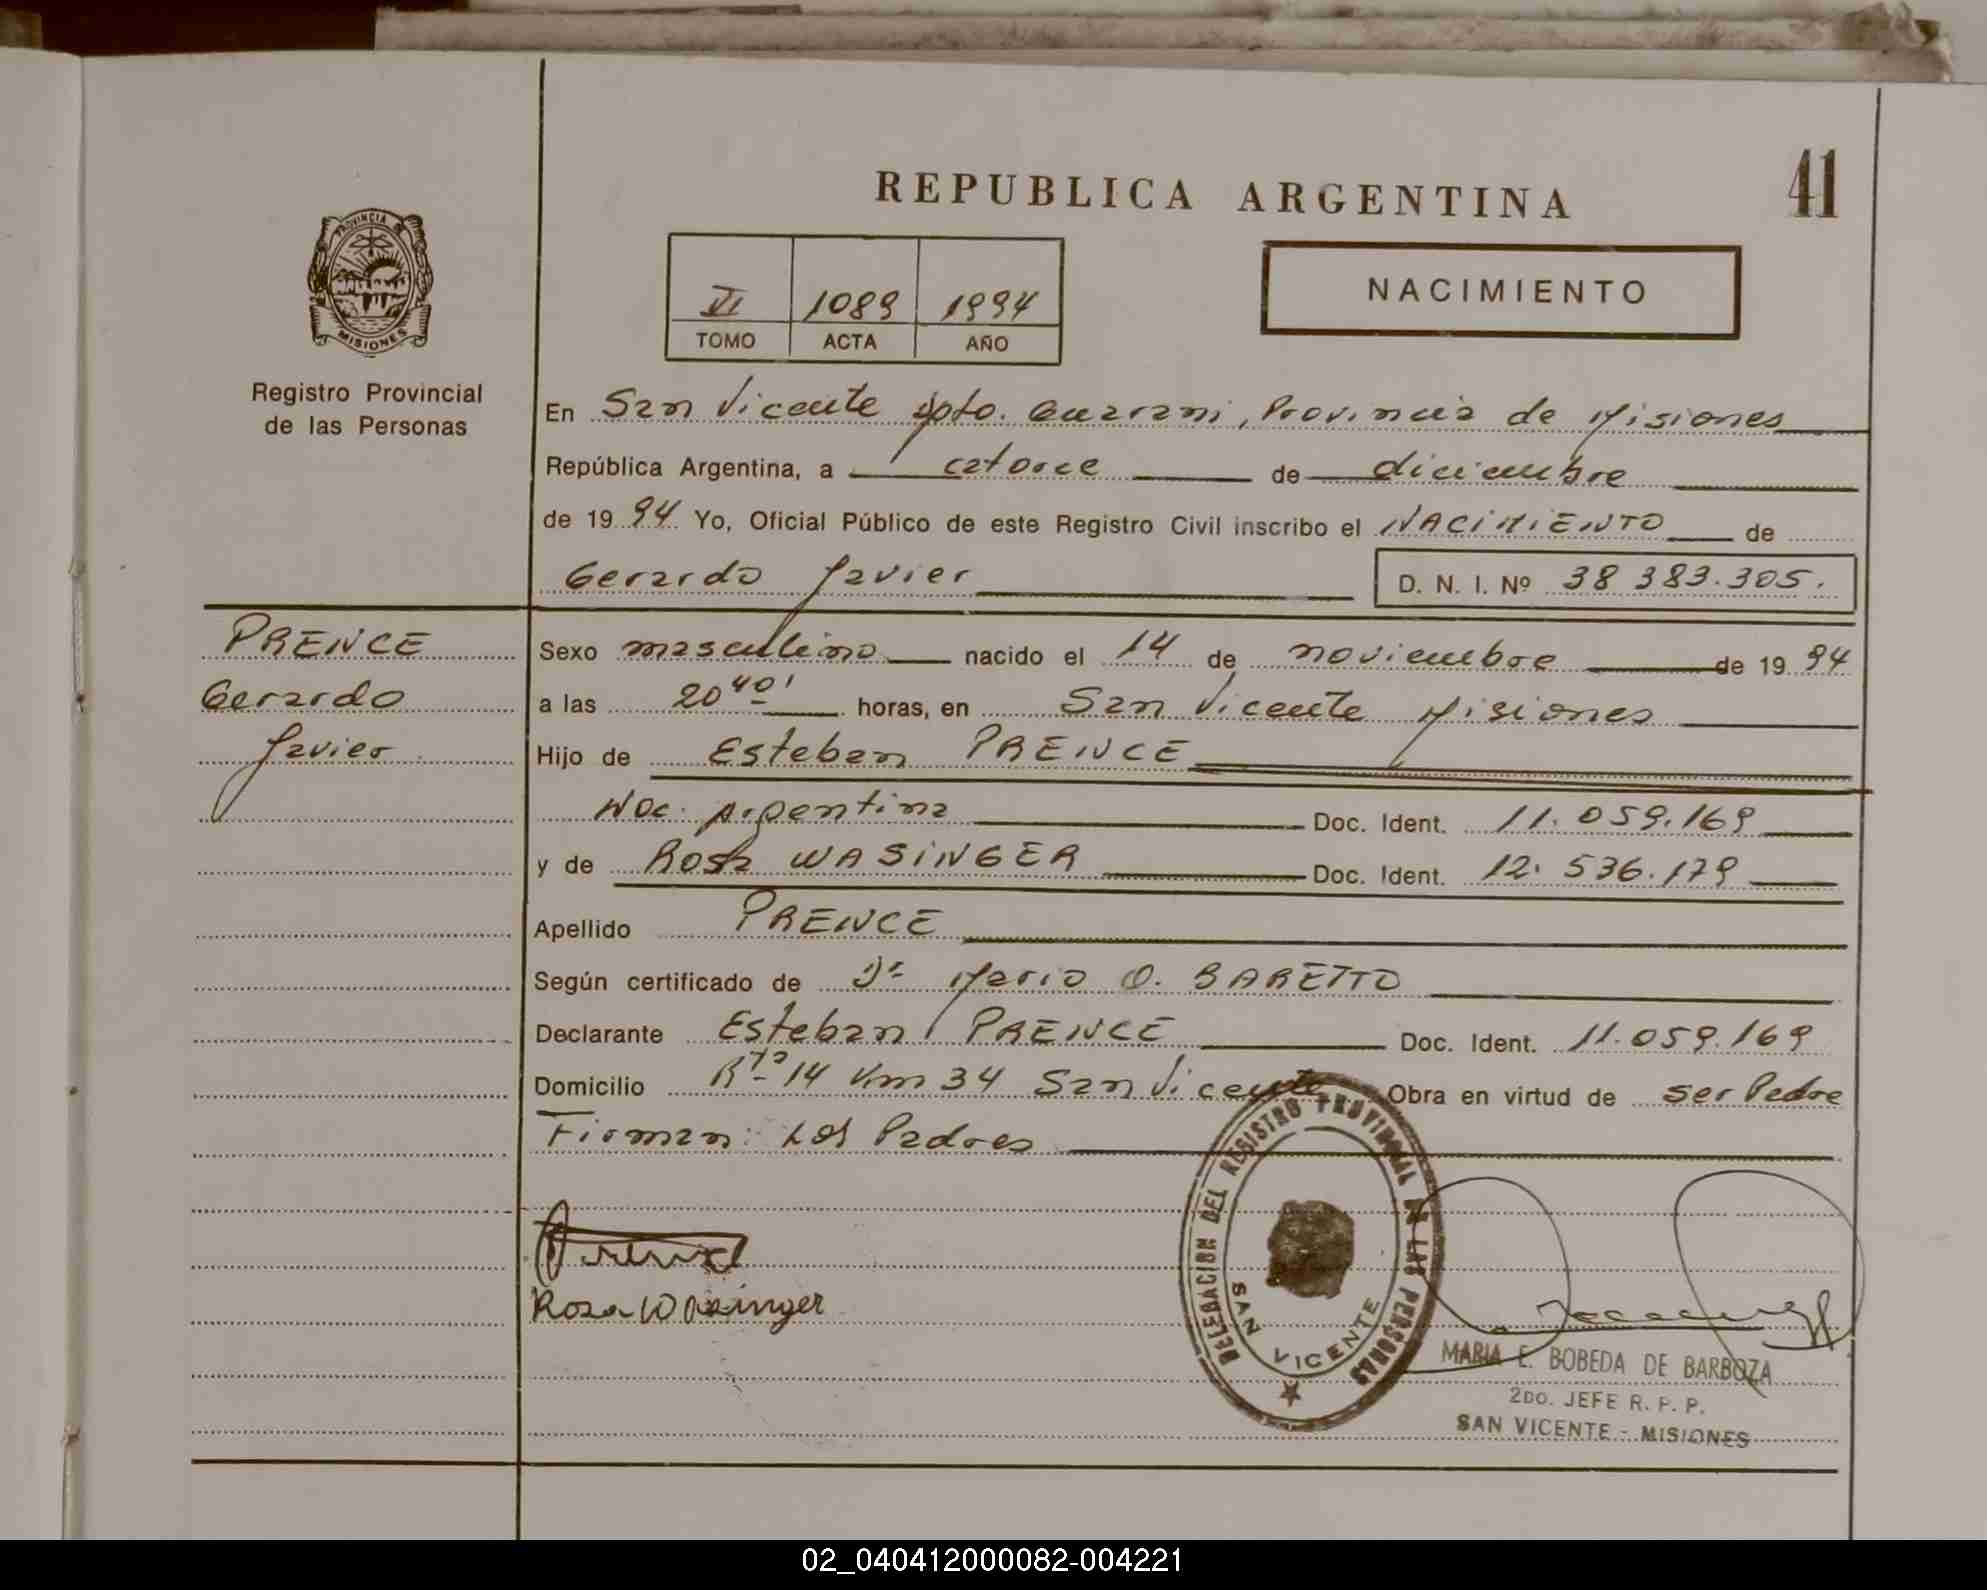 41
REPUBLICA ARGENTINA
PROVINCIA DE
MISIONES
VI 1089 1994
TOMO ACTA AÑO
NACIMIENTO
Registro Provincial
de las Personas
En San Vicente Dpto. Guarani, Provincia de Misiones
República Argentina, a catorce de diciembre
de 19 94 Yo, Oficial Público de este Registro Civil inscribo el NACIMIENTO de
Gerardo Javier D. N. I. Nº 38 383.305.
PRENCE
Gerardo
Javier
Sexo masculino nacido el 14 de noviembre de 19 94
a las 20 40' horas, en San Vicente Misiones
Hijo de Esteban PRENCE
Nac. Argentina Doc. Ident. 11.059.169
y de Rosa WASINGER Doc. Ident. 12.536.179
Apellido PRENCE
Según certificado de Dr Mario O. BARETTO
Declarante Esteban PRENCE Doc. Ident. 11.059.169
Domicilio Rta 14 Km 34 San Vicente Obra en virtud de ser Padre
Firman: Los Padres
Prence
Rosa Wasinger
DELEGACION DEL REGISTRO PROVINCIAL DE LAS PERSONAS
SAN VICENTE
MARIA E. BOBEDA DE BARBOZA
2DO. JEFE R. P. P.
SAN VICENTE - MISIONES
02_040412000082-004221